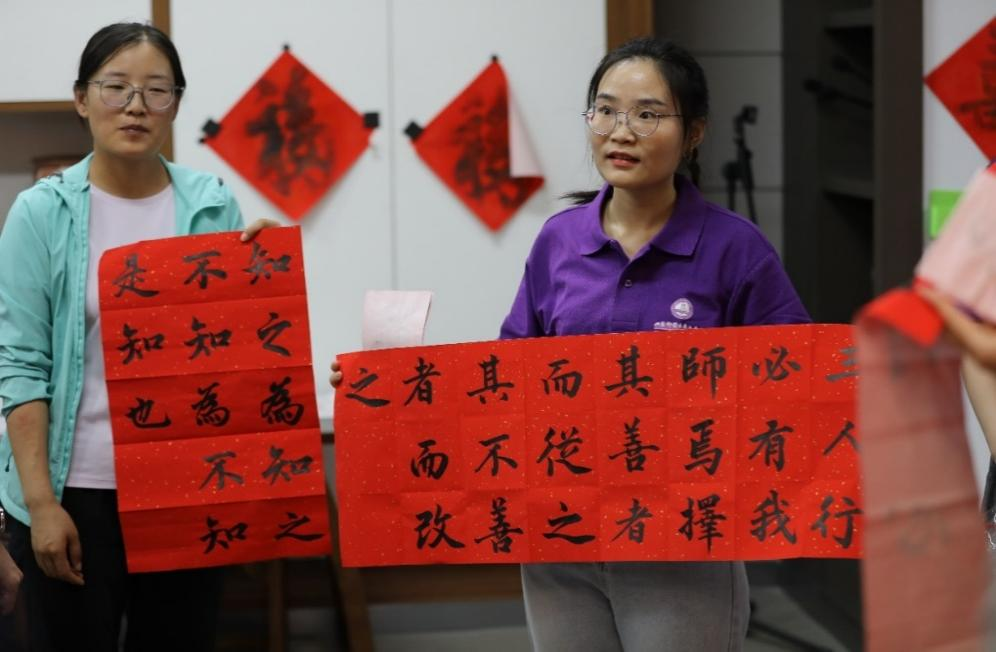 知之為知之
不知為不知
是知也
三人行
必有我
師焉擇
其善者
而從之
其不善
者而改
之